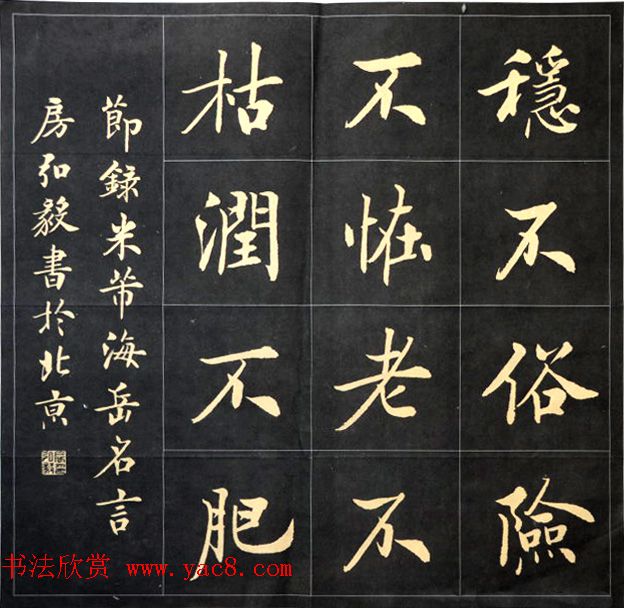 穩不俗險
不恠老不
枯潤不肥
節錄米芾海岳名言
房弘毅書於北京
书法欣赏 www.yac8.com